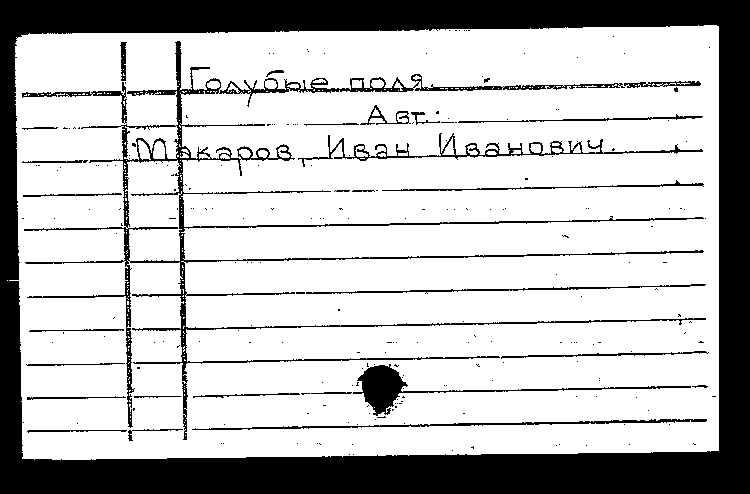 Голубые поля.
Авт.:
Макаров, Иван Иванович.